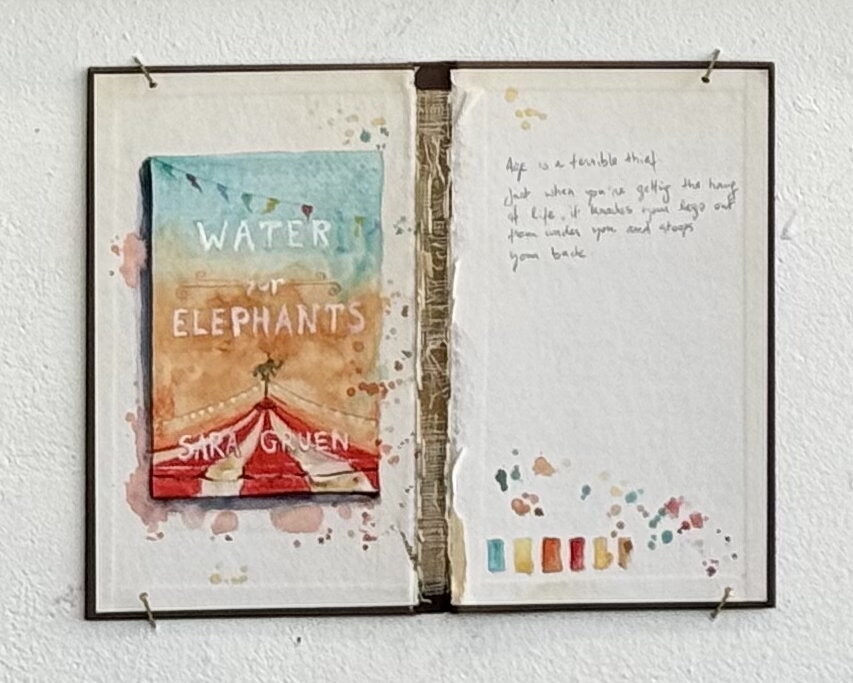 WATER
for
ELEPHANTS
SARA GRUEN
Age is a terrible thief
Just when you're getting the hang
of life, it knocks your legs out
from under you and stoops
your back